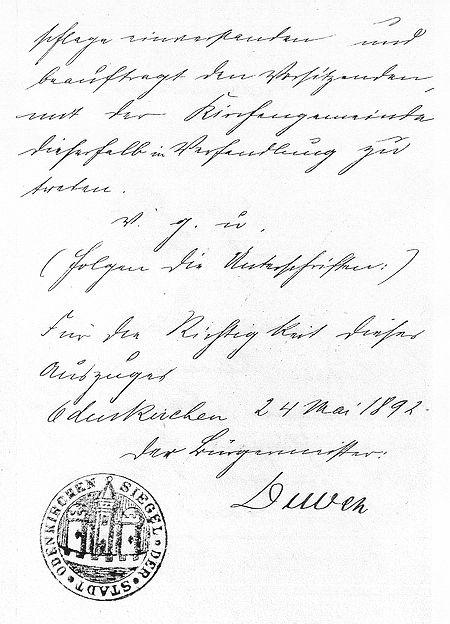 pflege einverstanden und
beauftragt den Vorsitzenden,
mit der Kirchengemeinde
dieserhalb in Verhandlung zu
treten.
v. g. u.
(folgen die Unterschriften:)
Für die Richtigkeit dieses
Auszuges
Odenkirchen 24 Mai 1892.
Der Bürgermeister:
SIEGEL DER STADT ODENKIRCHEN